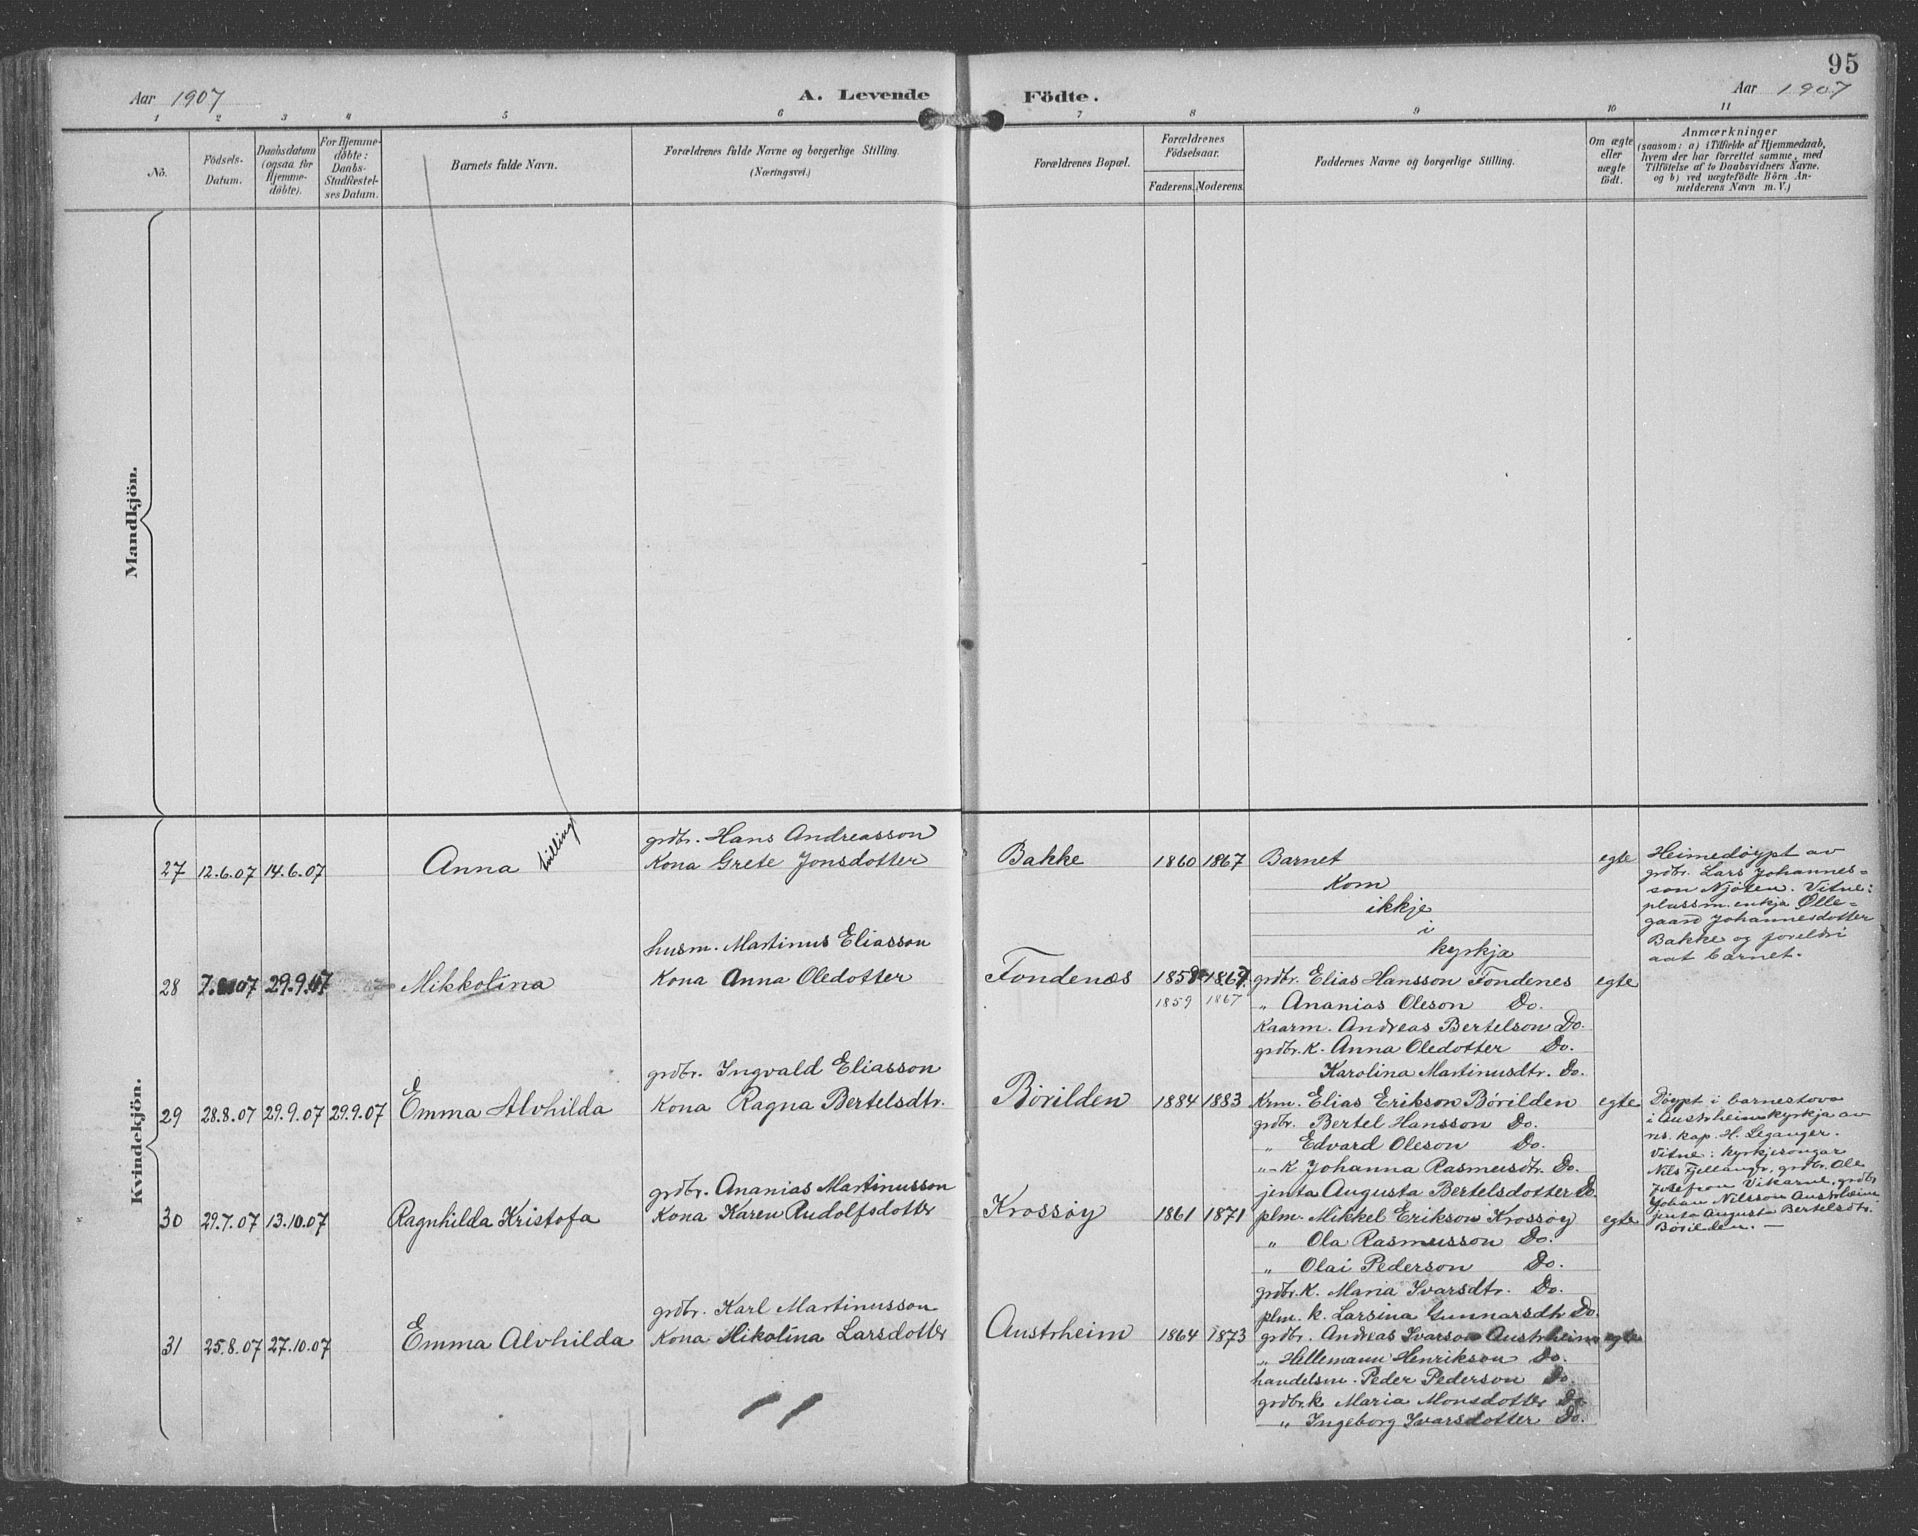 95
Aar 1907
A. Levende Födte.
Aar 1907
1 2 3 4 5 6 7 8 9 10 11
No.
Födsels-
Datum.
Daabsdatum
(ogsaa for
Hjemme-
döbte).
For Hjemme-
döbte:
Daabs-
Stadfæstel-
ses Datum.
Barnets fulde Navn.
Forældrenes fulde Navne og borgerlige Stilling.
(Næringsvei.)
Forældrenes Bopæl.
Forældrenes
Födselsaar.
Faderens. Moderens.
Faddernes Navne og borgerlige Stilling.
Om ægte
eller
uægte
födt.
Anmærkninger
(saasom: a) i Tilfælde af Hjemmedaab,
hvem der har forrettet samme, med
Tilföielse af to Daabsvidners Navne,
og b) ved uægtefödte Börn An-
melderens Navn m. V.)
Mandkjön.
Kvindekjön.
27 12.6.07 14.6.07
Anna tvilling
grdbr. Hans Andreasson
Kona Grete Jonsdotter
Bakke 1860 1867
Barnet
Kom
ikkje
i
kyrkja
egte
Heimedöypt av
grdbr. Lars Johannes-
son Njöten. Vitne:
plassm.enkja Ölle-
gaard Johannesdotter
Bakke og foreldri
aat barnet.
28 29.9.07
Mikkolina
husm. Martinus Eliasson
Kona Anna Oledotter
Fondenæs
1859 1867
grdbr. Elias Hansson Fondenes
" Ananias Oleson Do.
Kaarm. Andreas Bertelson Do.
grdbr.k. Anna Oledotter Do.
Karolina Martinusdtr. Do.
egte
29 28.8.07 29.9.07 29.9.07
Emma Alvhilda
grdbr. Ingvald Eliasson
Kona Ragna Bertelsdtr.
Börilden 1884 1883
Krm. Elias Erikson Börilden
grdbr. Bertel Hansson Do.
" Edvard Oleson Do.
"-K Johanna Rasmusdtr. Do.
jenta Augusta Bertelsdotter Do.
egte
Döypt i barnestova
i Austrheimkyrkja av
res. kap. H. Leganger.
Vitne: kyrkjesongar
Nils Fjellanger, grdbr. Ole
Vikarne, grdbr.
Johan Nilsson Austrheim,
jenta Augusta Bertelsdtr.
Börilden. —
30 29.7.07 13.10.07
Ragnhilda Kristofa
grdbr. Ananias Martinusson
Kona Karen Rudolfsdotter
Krossöy 1861 1871
plm. Mikkel Erikson Krossöy
" Ola Rasmusson Do.
" Olai Pederson Do.
grdbr.k. Maria Ivarsdtr. Do.
plm. k. Larsina Gunnarsdtr Do.
egte
31 25.8.07 27.10.07
Emma Alvhilda
grdbr. Karl Martinusson
Kona Mikolina Larsdotter
Austrheim 1864 1873
grdbr. Andreas Ivarson Austrheim
" Hellemann Henrikson Do.
handelsm. Peder Pederson Do.
grdbr.k. Maria Monsdotter Do
" Ingeborg Ivarsdotter Do.
egte